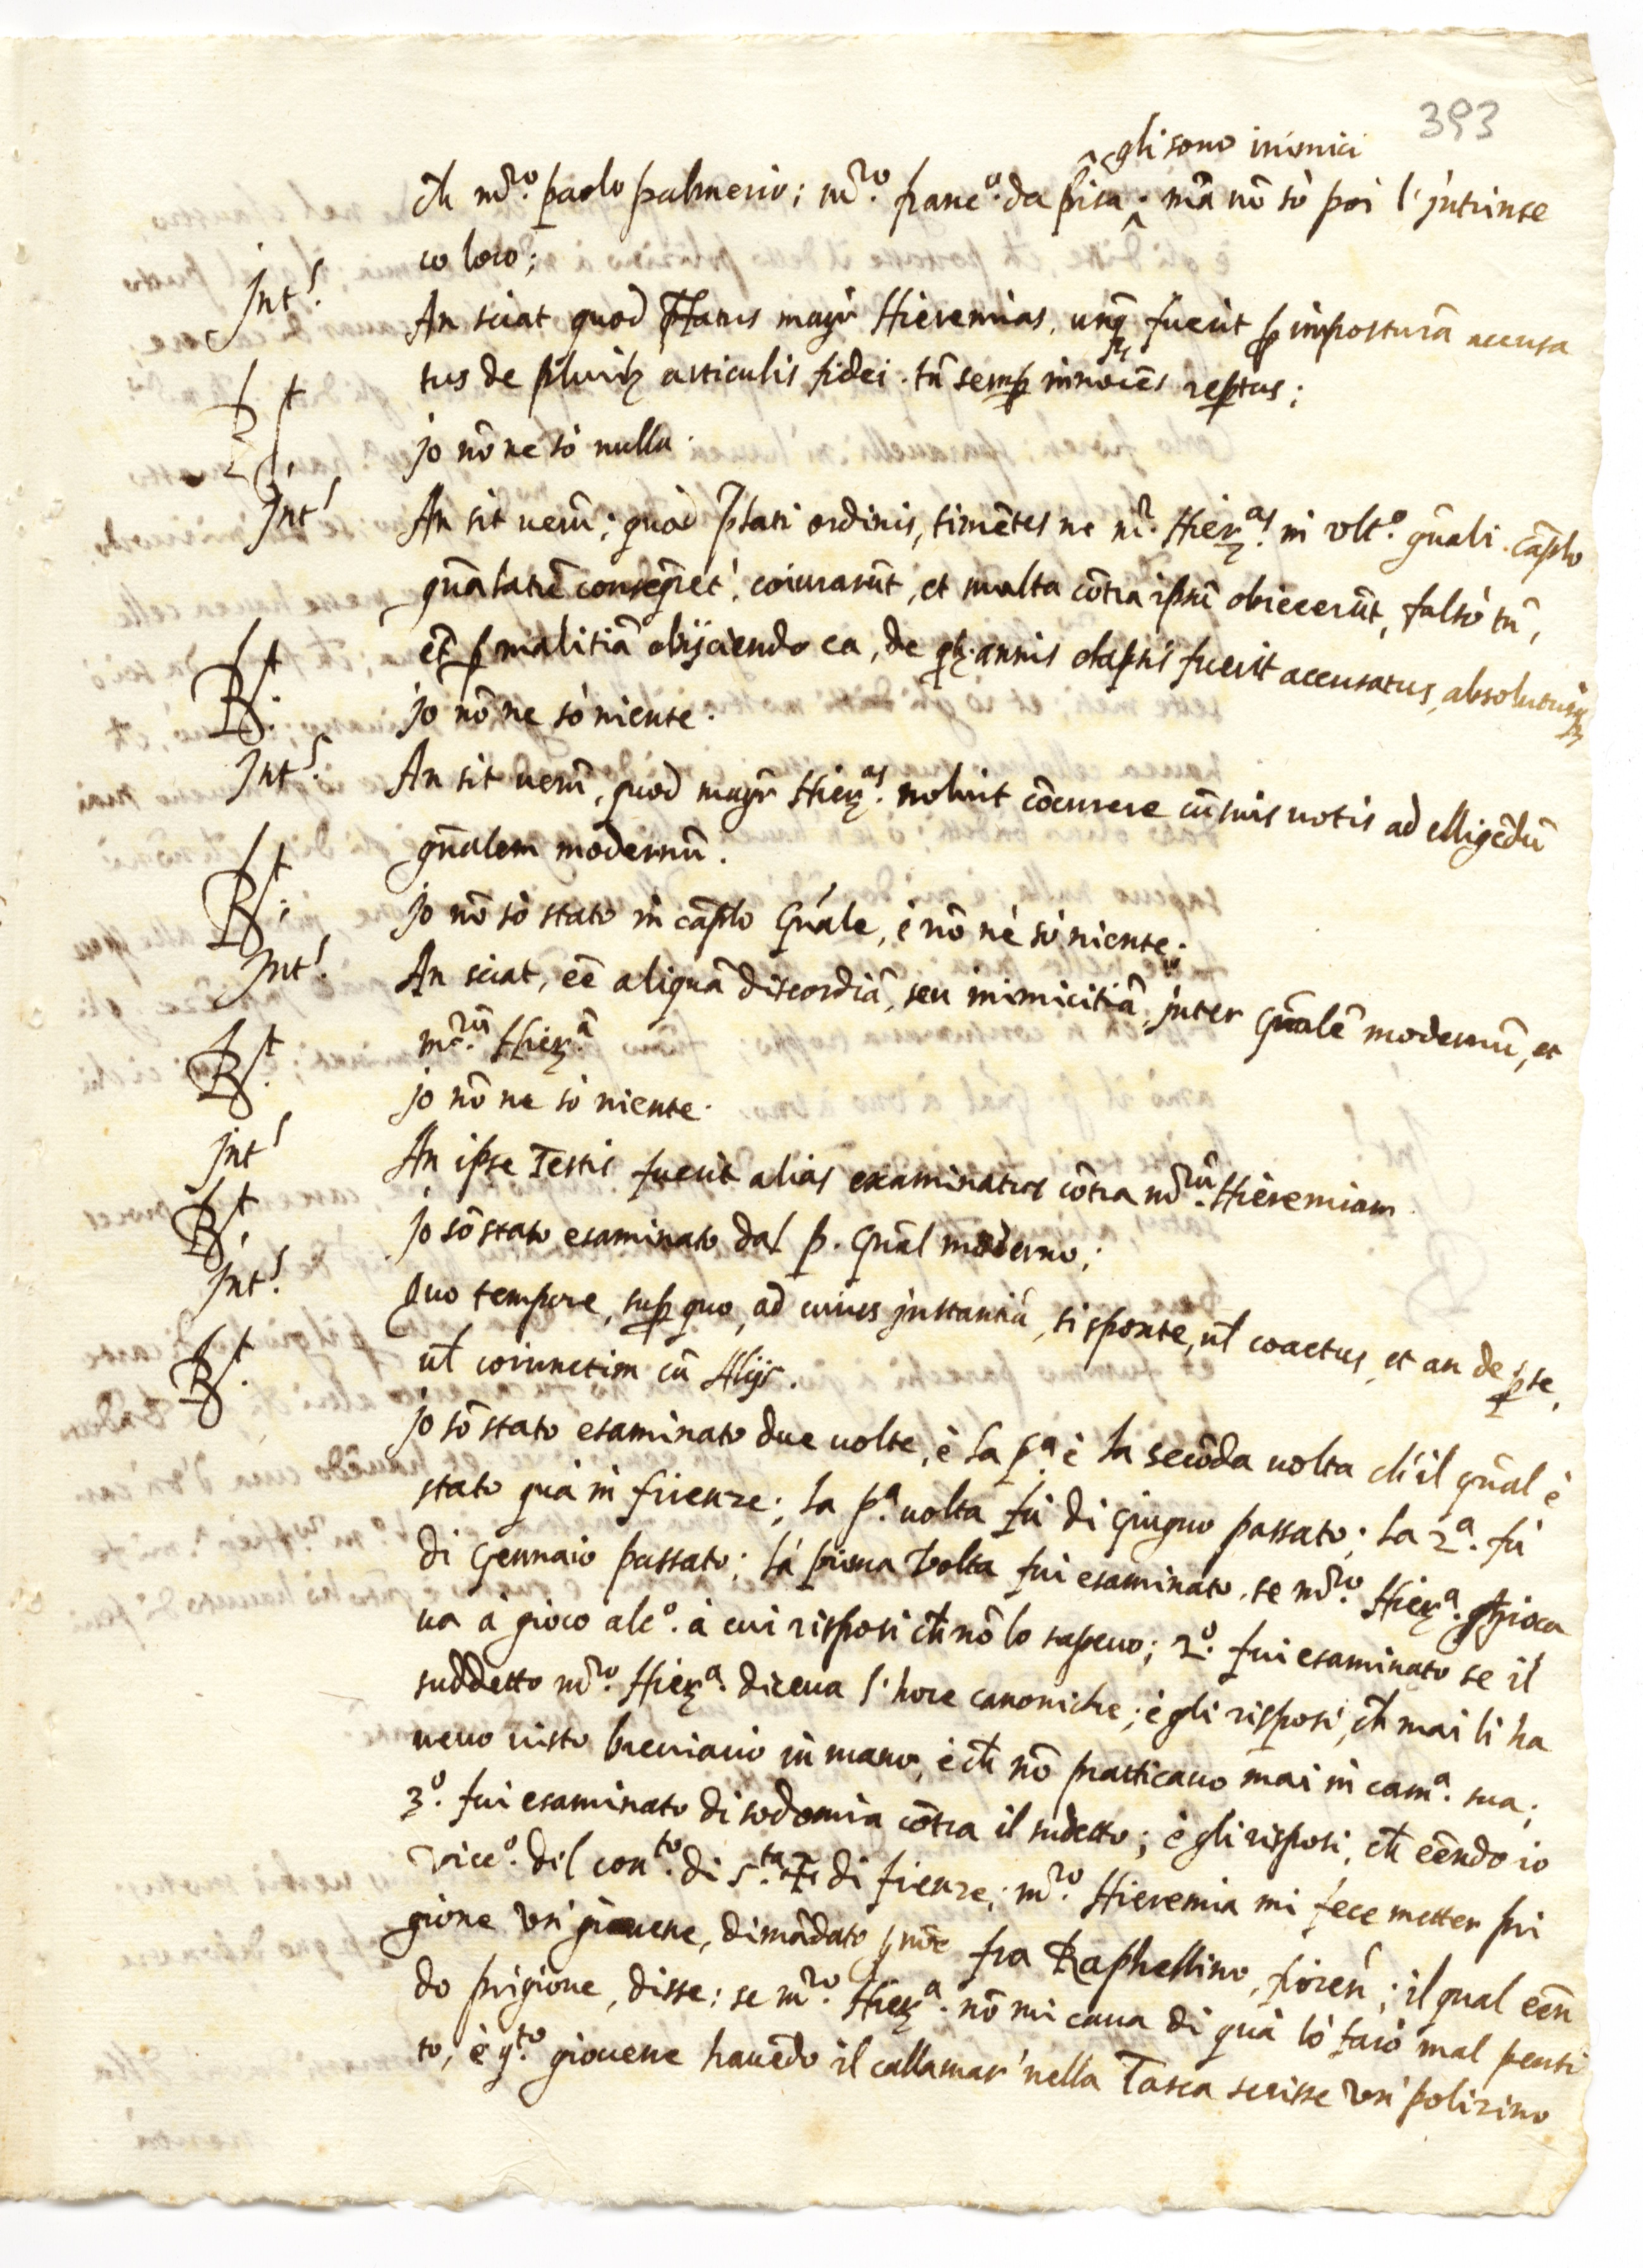 393
gli sono inimici
ch̃ m̃ro. paolo palmerio; m̃ro. franc.o da pisa; mà nõ sò poi l'jntrinse
co loro;
Jnt.s An sciat quod p̃fatus mag̃r Hieremias, unq̃ fuerit p imposturã accusa
tus de plurib; articulis fidei. tñ semp innocẽs reptus;
R.t jo nõ ne sò nulla.
Jnt.s An sit uerũ; quod p̃lati ordinis, timẽtes ne m̃r. Hier.as in vlt.o gñali. cap̃lo
gñalatũ conseq̃ret', coniurarũt, et multa cõtra ipsũ obiecerũt, falsò tñ,
et p malitiã obijciendo ea, de qb; annis elapsis fuerit accusatus, absolutusq;
R.t jo nõ ne sò niente.
Jnt.s An sit uerũ, quod mag̃r Hier.as noluit cõcurrere cũ suis uotis ad elligẽdũ
gñalem modernũ.
R.t jo nõ sò stato in cap̃lo Gñale, è nõ nè sò niente;
Jnt.s An sciat, eẽ aliquã discordiã, seu inimicitiã, jnter Gñalẽ modernũ, et
m̃rũ. Hier.ã
R.t jo nõ ne sò niente.
jnt.s An ipse Testis fuerit alias examinatus cõtra m̃rũ. Hieremiam
R.t jo sõ stato esaminato dal p. Gñal moderno;
jnt.s Quo tempore, sup quo, ad cuius jnstantiã, si sponte, ul̃ coactus, et an de p se,
ul̃ coniunctim cũ Alijs.
R.t jo sõ stato esaminato due uolte, è la p.a è la secõda uolta ch'il gñal è
stato quà in firenze; la p.a uolta fù di Giugno passato; la 2.a fù
di Gennaio passato; la prima Volta fui esaminato, se m̃ro. Hier.a gioca
ua à gioco alc.o à cui risposi ch̃ nõ lo sapeuo; 2.o fui esaminato se il
suddetto m̃ro. Hier.a diceua l'hore canoniche; è gli risposi, ch̃ mai li ha
ueuo uisto breuiario in mano, è ch̃ nõ pratticauo mai in cam.a sua;
3.o fui esaminato di sodomia cõtra il sudetto; è gli risposi, ch̃ eẽndo io
Vicc.o del con.to di S.ta ✠ di firenze; m̃ro. Hieremia mi fece metter pri
gione un' giouene, dimãdato p nõe fra Raphellino, fioren̄; il qual eẽn
do prigione, disse: se m̃ro. Hier.a nõ mi caua di quà lò farò mal penti
to, è q.to giouene hauẽdo il callamar' nella Tasca scrisse un' polizino